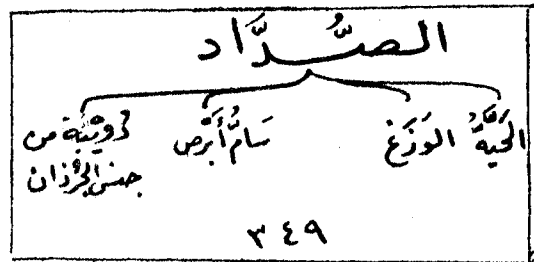 الصُّدَّاد
الحَيَّةُ الوَزَغ سَامُّ أَبْرَص دُوَيْبَّة من
جنس الجُرْذان
٣٤٩